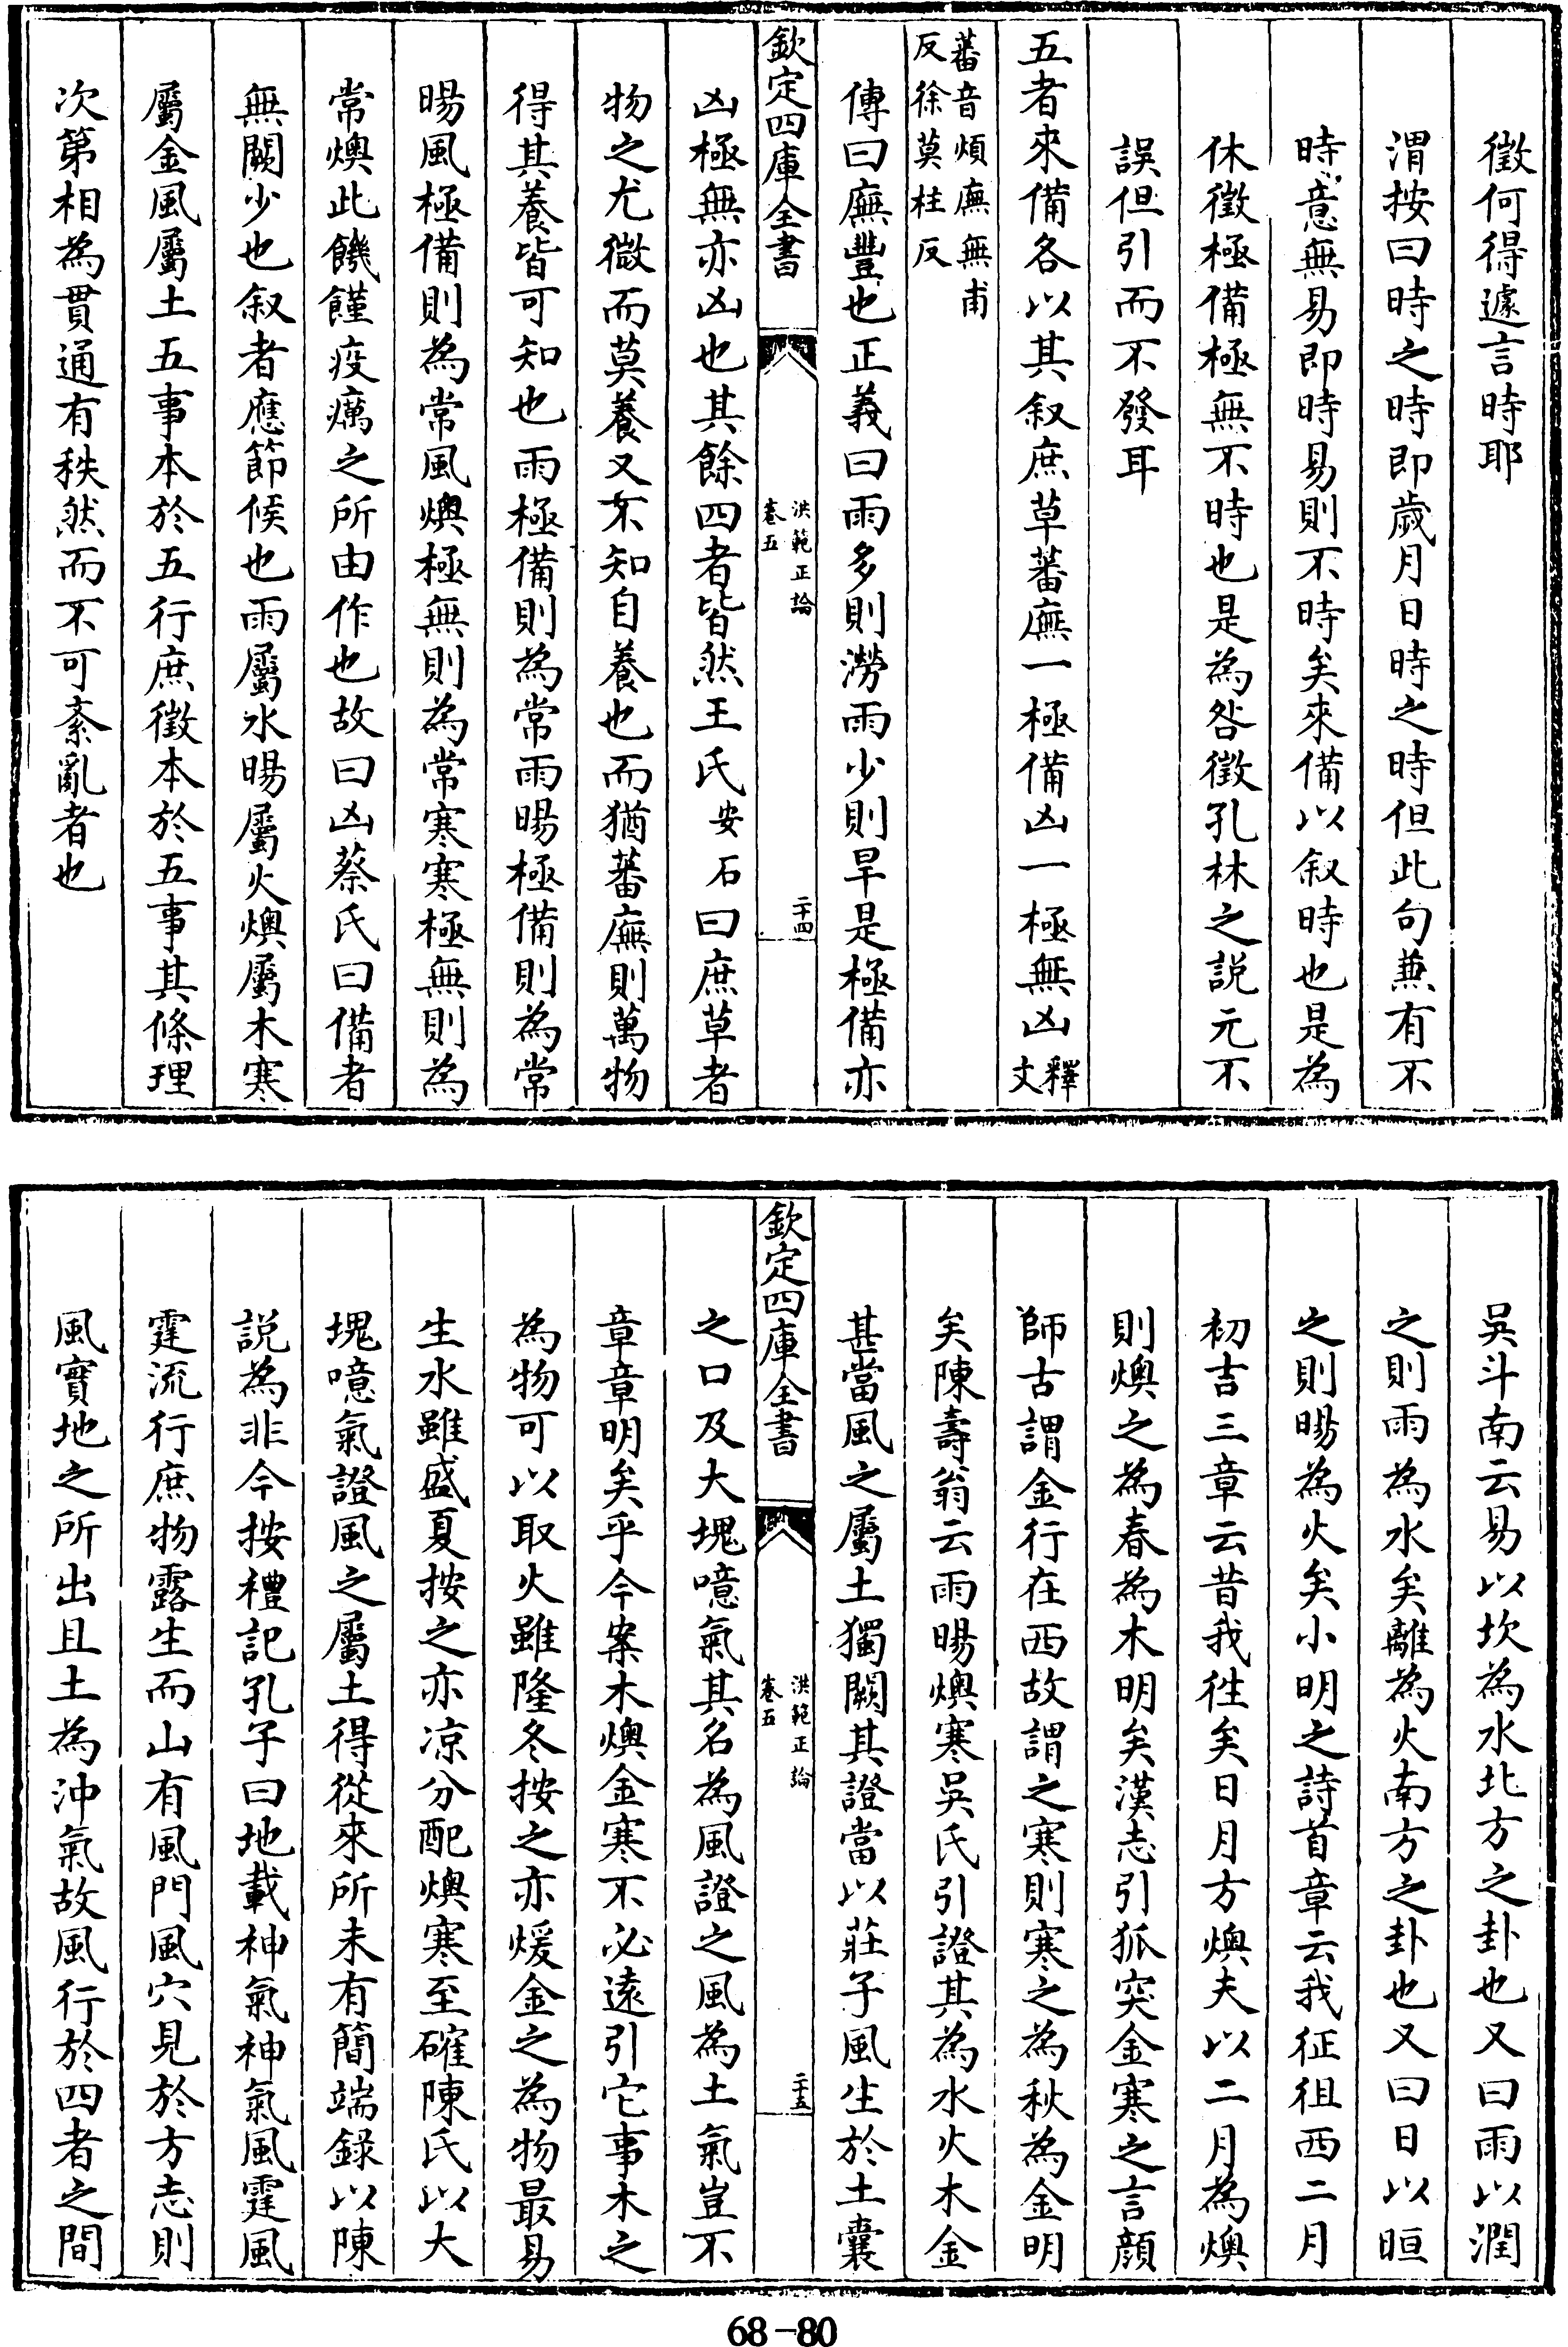 徵何得遽言時耶
渭按曰時之時即歲月日時之時但此句兼有不
時意無易即時易則不時矣來備以叙時也是為
休徵極備極無不時也是為咎徵孔林之説元不
誤但引而不發耳
五者來備各以其叙庶草蕃廡一極備凶一極無凶釋文
蕃音煩廡無甫
反徐莫柱反
傳曰廡豐也正義曰雨多則澇雨少則旱是極備亦
欽定四庫全書
洪範正論
卷五
二十四
凶極無亦凶也其餘四者皆然王氏安石曰庶草者
物之尤微而莫養又不知自養也而猶蕃廡則萬物
得其養皆可知也雨極備則為常雨暘極備則為常
暘風極備則為常風燠極無則為常寒寒極無則為
常燠此饑饉疫癘之所由作也故曰凶蔡氏曰備者
無闕少也叙者應節候也雨屬水暘屬火燠屬木寒
屬金風屬土五事本於五行庶徵本於五事其條理
次第相為貫通有秩然而不可紊亂者也
吳斗南云易以坎為水北方之卦也又曰雨以潤
之則雨為水矣離為火南方之卦也又曰日以晅
之則暘為火矣小明之詩首章云我征徂西二月
初吉三章云昔我徃矣日月方燠夫以二月為燠
則燠之為春為木明矣漢志引狐突金寒之言顔
師古謂金行在西故謂之寒則寒之為秋為金明
矣陳壽翁云雨暘燠寒吳氏引證其為水火木金
甚當風之屬土獨闕其證當以莊子風生於土囊
欽定四庫全書
洪範正論
卷五
二十五
之口及大塊噫氣其名為風證之風為土氣豈不
章章明矣乎今案木燠金寒不必遠引它事木之
為物可以取火雖隆冬按之亦煖金之為物最易
生水雖盛夏按之亦凉分配燠寒至確陳氏以大
塊噫氣證風之屬土得從來所未有簡端録以陳
説為非今按禮記孔子曰地載神氣神氣風霆風
霆流行庶物露生而山有風門風穴見於方志則
風實地之所出且土為沖氣故風行於四者之間
68-80